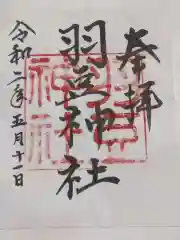 奉拝
羽黒神社
令和二年五月十一日